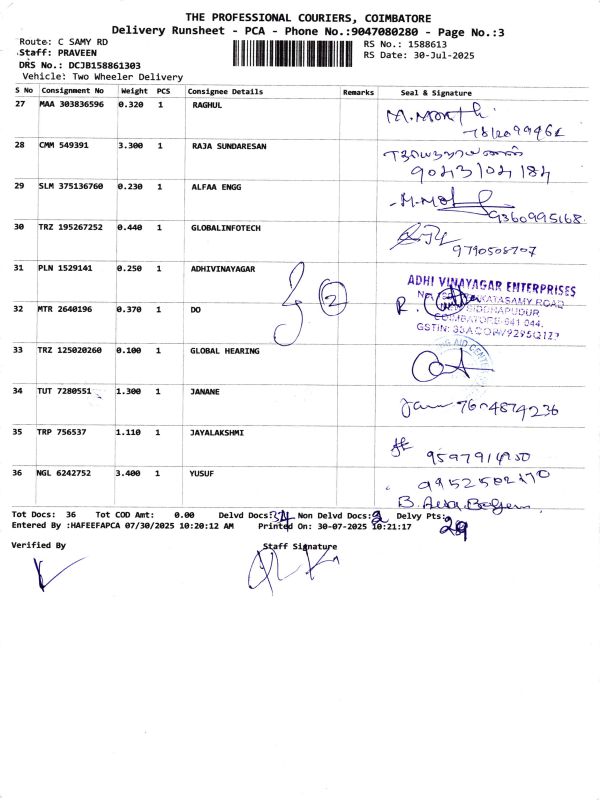 THE PROFESSIONAL COURIERS, COIMBATORE
Delivery Runsheet - PCA - Phone No.:9047080280 - Page No.:3
Route: C SAMY RD
Staff: PRAVEEN
DRS No.: DCJB158861303
Vehicle: Two Wheeler Delivery
RS No.: 1588613
RS Date: 30-Jul-2025
S No Consignment No Weight PCS Consignee Details Remarks Seal & Signature
27 MAA 303836596 0.320 1 RAGHUL
28 CMM 549391 3.300 1 RAJA SUNDARESAN
9043104184
29 SLM 375136760 0.230 1 ALFAA ENGG
9360995168
30 TRZ 195267252 0.440 1 GLOBALINFOTECH
9790508707
31 PLN 1529141 0.250 1 ADHIVINAYAGAR
ADHI VINAYAGAR ENTERPRISES
32 MTR 2640196 0.370 1 DO
2
COIMBATORE-641 044.
33 TRZ 125020260 0.100 1 GLOBAL HEARING
34 TUT 7280551 1.300 1 JANANE
7604874236
35 TRP 756537 1.110 1 JAYALAKSHMI
36 NGL 6242752 3.400 1 YUSUF
Tot Docs: 36 Tot COD Amt: 0.00 Delvd Docs: 34 Non Delvd Docs: 2 Delvy Pts: 29
Entered By :HAFEEFAPCA 07/30/2025 10:20:12 AM Printed On: 30-07-2025 10:21:17
Verified By Staff Signature